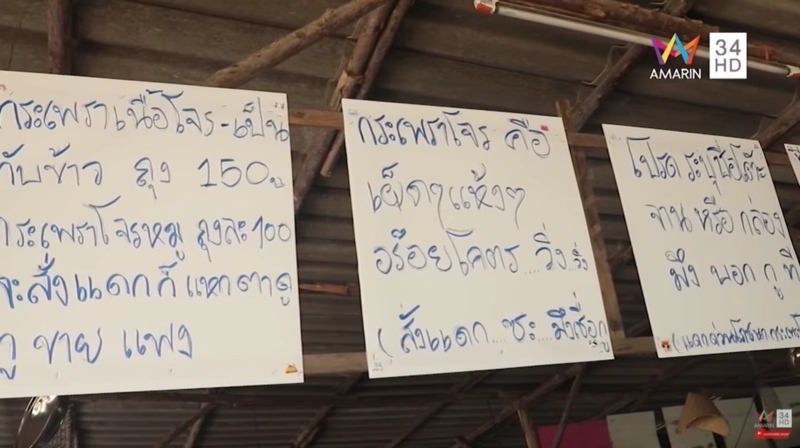 กระเพราเนื้อโจร-เป็น
กับข้าว ถุง 150.
กระเพราโจรหมู ถุงละ 100
จะสั่งแดกก็แหกตาดู
กู ขาย แพง
กระเพราโจร คือ
เผ็ดๆแห้งๆ
อร๊อยโคตร...วิ่ง
(สั่งแดก...ซะ...มึงเชื่อกู
โปรด ระบุชื่อโต๊ะ
จาน หรือ กล่อง
มึง บอก กู ที
AMARIN 34 HD
34 HD